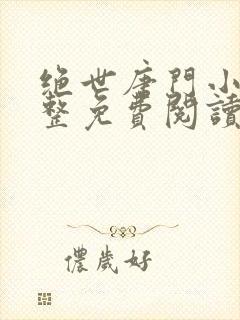 绝世唐門小
整免費閱讀
儂歲好